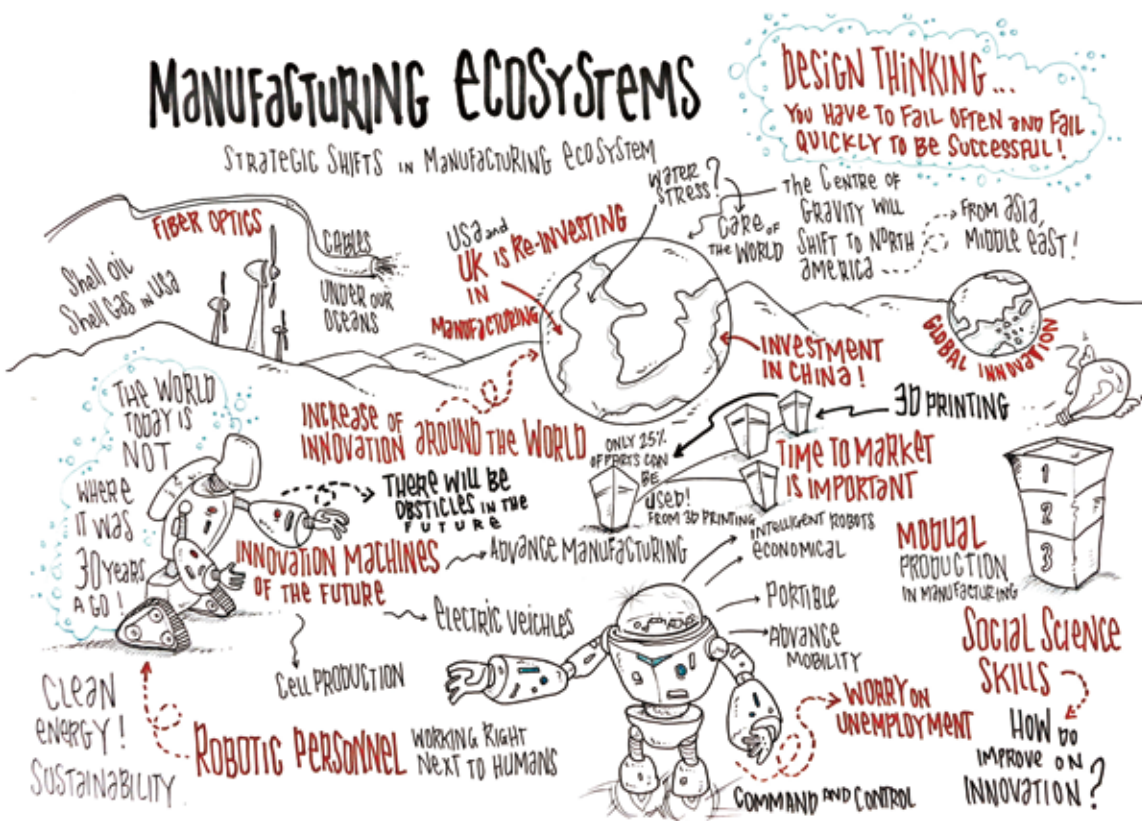 MANUFACTURING ECOSYSTEMS
STRATEGIC SHIFTS IN MANUFACTURING ECOSYSTEM
DESIGN THINKING...
YOU HAVE TO FAIL OFTEN AND FAIL
QUICKLY TO BE SUCCESSFUL!
FIBER OPTICS
CABLES
UNDER OUR
OCEANS
Shell OIL
Shell GAS IN USA
USA and
UK IS RE-INVESTING
IN
MANUFACTURING
WATER
STRESS?
CARE OF
THE WORLD
THE CENTRE OF
GRAVITY WILL
SHIFT TO NORTH
AMERICA
FROM ASIA,
MIDDLE EAST!
GLOBAL INNOVATION
INVESTMENT
IN CHINA!
THE WORLD
TODAY IS
NOT
WHERE
IT WAS
30 YEARS
AGO!
INCREASE OF
INNOVATION AROUND THE WORLD
THERE WILL BE
OBSTICLES IN THE
FUTURE
ONLY 25%
OF PARTS CAN
BE
USED!
FROM 3D PRINTING
3D PRINTING
TIME TO MARKET
IS IMPORTANT
1
2
3
MODUAL
PRODUCTION
IN MANUFACTURING
INNOVATION MACHINES
OF THE FUTURE
ADVANCE MANUFACTURING
ELECTRIC VEICHLES
CELL PRODUCTION
INTELLIGENT ROBOTS
ECONOMICAL
PORTIBLE
ADVANCE
MOBILITY
WORRY ON
UNEMPLOYMENT
COMMAND AND CONTROL
SOCIAL SCIENCE
SKILLS
HOW DO
IMPROVE ON
INNOVATION?
CLEAN
ENERGY!
SUSTAINABILITY
ROBOTIC PERSONNEL
WORKING RIGHT
NEXT TO HUMANS